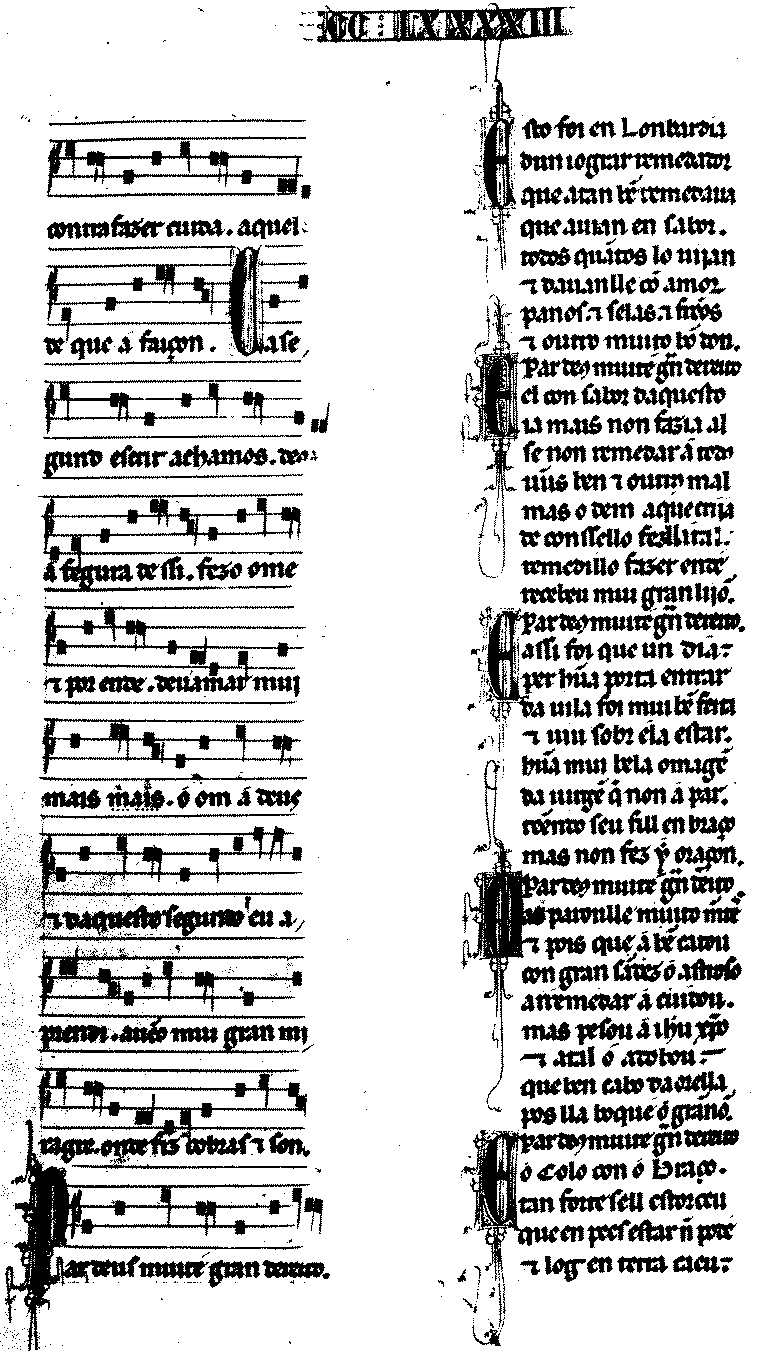 CC LXXXXIII
contrafazer cuida. aquel
de que a faiçon. Ca se
gund escrit achamos.
á fegura de ssi. fezo ome
⁊ por ende. deu amar mui
mais mais. ó om á deus
⁊ daquesto segundo eu a
prendi. aueo mui gran mi
ragre. onde fiz cobras ⁊ son.
Par deus muit é gran dereito.
Esto foi en Lonbardia
dun iograr remedador
que atan bẽ remedaua
que auian en sabor.
todos quãtos lo uijan
⁊ dauanlle cõ amor
panos ⁊ selas ⁊ frẽos
⁊ outro muito bõ don.
Par d's muit é gñ dereito
El con sabor daquesto
ia mais non fazia al
se non remedar á todos
ũus ben ⁊ outros mal
mas o dem
de conssello fezll
remedillo fazer onde
recebeu mui gran lijõ.
Par d's muit é gñ dereito.
E assi foi que un dia
per hũa porta entrar
da uila foi mui bẽ feita
⁊ uiu sobr ela estar.
hũa mui bela omagẽ
da uirgẽ q̃ non á par.
tẽendo seu fill en braço
mas non fez y oraçon.
Par d's muit é gñ dereito
Mas paroulle muito mẽtes
⁊ pois que á bẽ catou
con gran sãdez ó astroso
arremedar á cuidou.
mas pesou á ihũ xp̃o
⁊ atal ó adobou
que ben cabo da orella
pos lla boque ó grãnõ.
Par d's muit é gñ dereito
E ó colo con ó braço.
tan forte sell estorceu
que en pees estar ñ pode
⁊ log en terra caeu